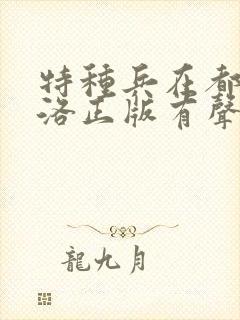 特種兵在都
洛正版有聲
龍九月